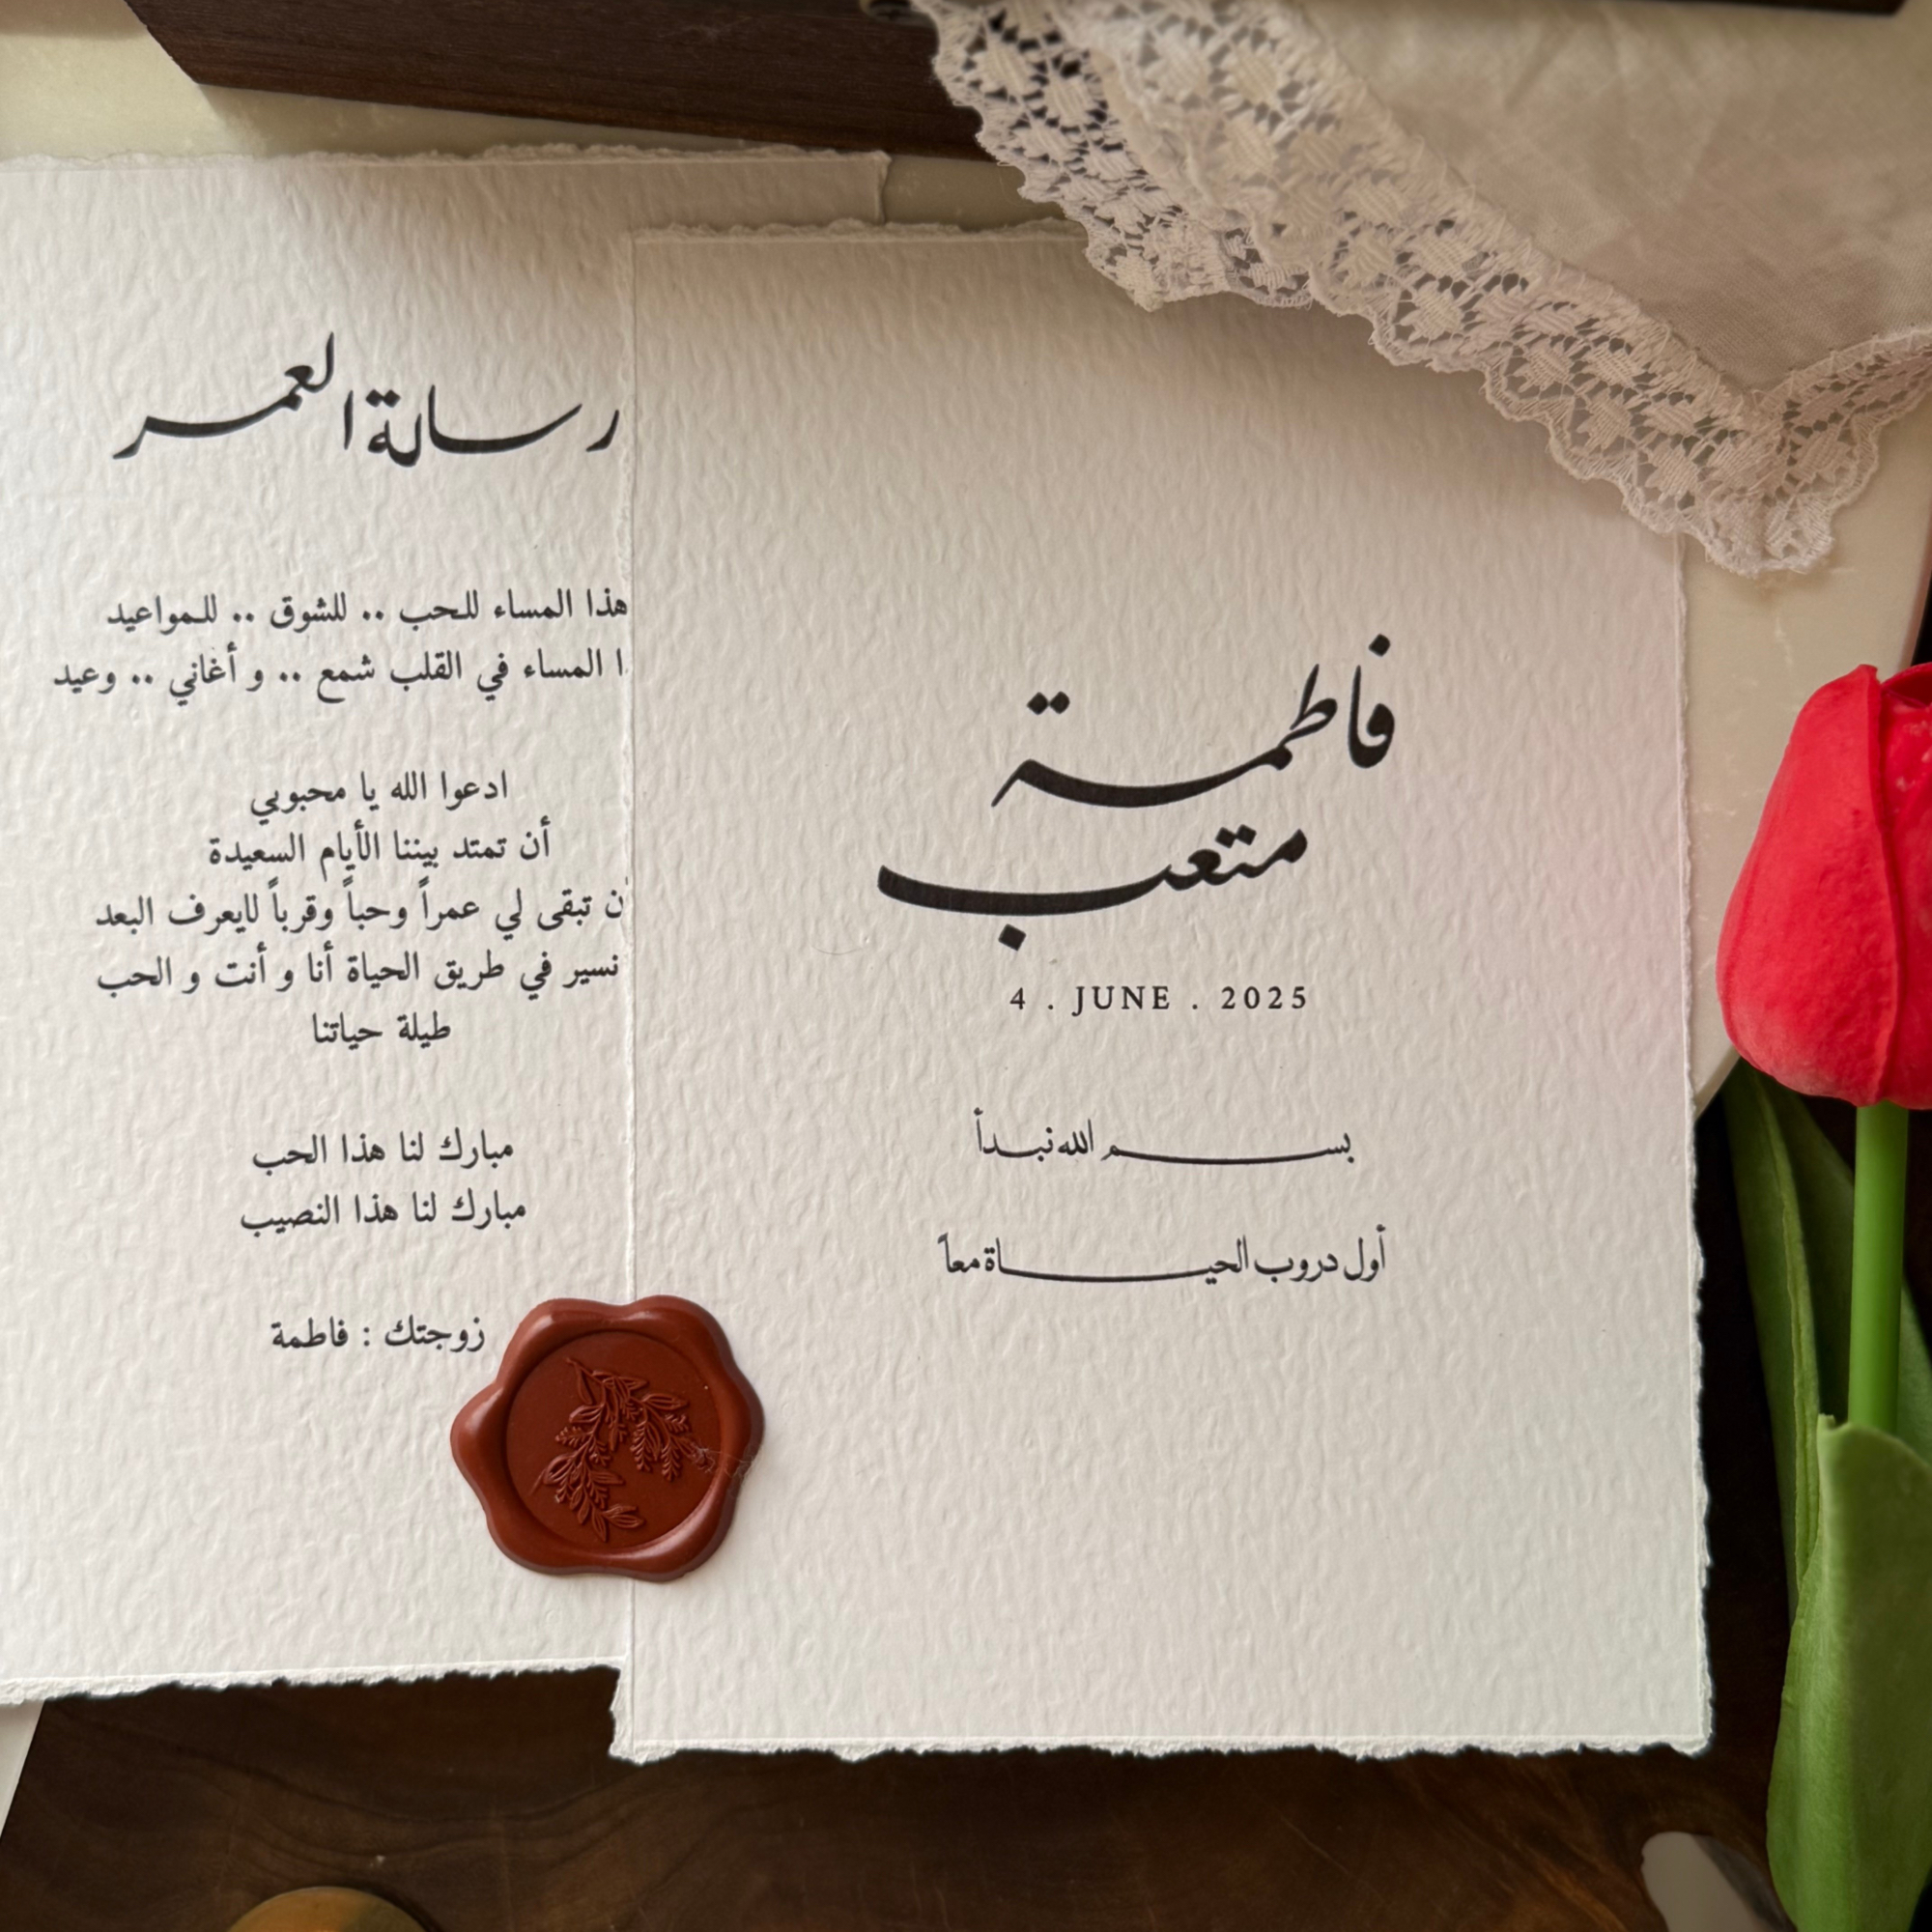 رسالة العمر
هذا المساء للحب .. للشوق .. للمواعيد
المساء في القلب شمع .. و أغاني .. وعيد
ادعوا الله يا محبوبي
أن تمتد بيننا الأيام السعيدة
تبقى لي عمراً وحباً وقرباً لايعرف البعد
نسير في طريق الحياة أنا و أنت و الحب
طيلة حياتنا
مبارك لنا هذا الحب
مبارك لنا هذا النصيب
زوجتك : فاطمة
فاطمة
متعب
4 . JUNE . 2025
بسم الله نبدأ
أول دروب الحياة معاً